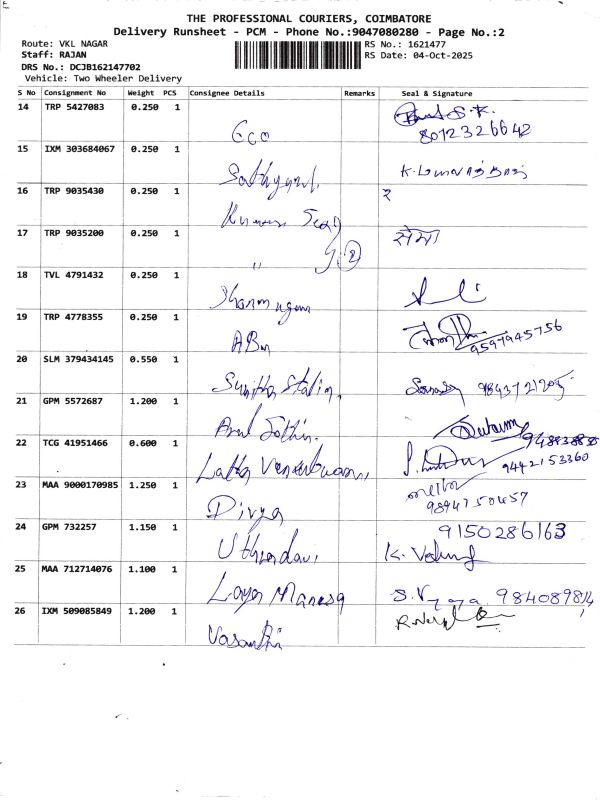 THE PROFESSIONAL COURIERS, COIMBATORE
Delivery Runsheet - PCM - Phone No.:9047080280 - Page No.:2
Route: VKL NAGAR
RS No.: 1621477
Staff: RAJAN
RS Date: 04-Oct-2025
DRS No.: DCJB162147702
Vehicle: Two Wheeler Delivery
S No Consignment No Weight PCS Consignee Details Remarks Seal & Signature
14 TRP 5427083 0.250 1
Gco
8012326642
15 IXM 303684067 0.250 1
16 TRP 9035430 0.250 1
17 TRP 9035200 0.250 1
"
2
18 TVL 4791432 0.250 1
Shanmugam
19 TRP 4778355 0.250 1
ABM
9597945756
20 SLM 379434145 0.550 1
Sunitha Stalin
21 GPM 5572687 1.200 1
Arul Jothin
22 TCG 41951466 0.600 1
Latha
9442153360
23 MAA 9000170985 1.250 1
Divya
9894750457
24 GPM 732257 1.150 1
9150286163
25 MAA 712714076 1.100 1
Laya
26 IXM 509085849 1.200 1
Vasanthi